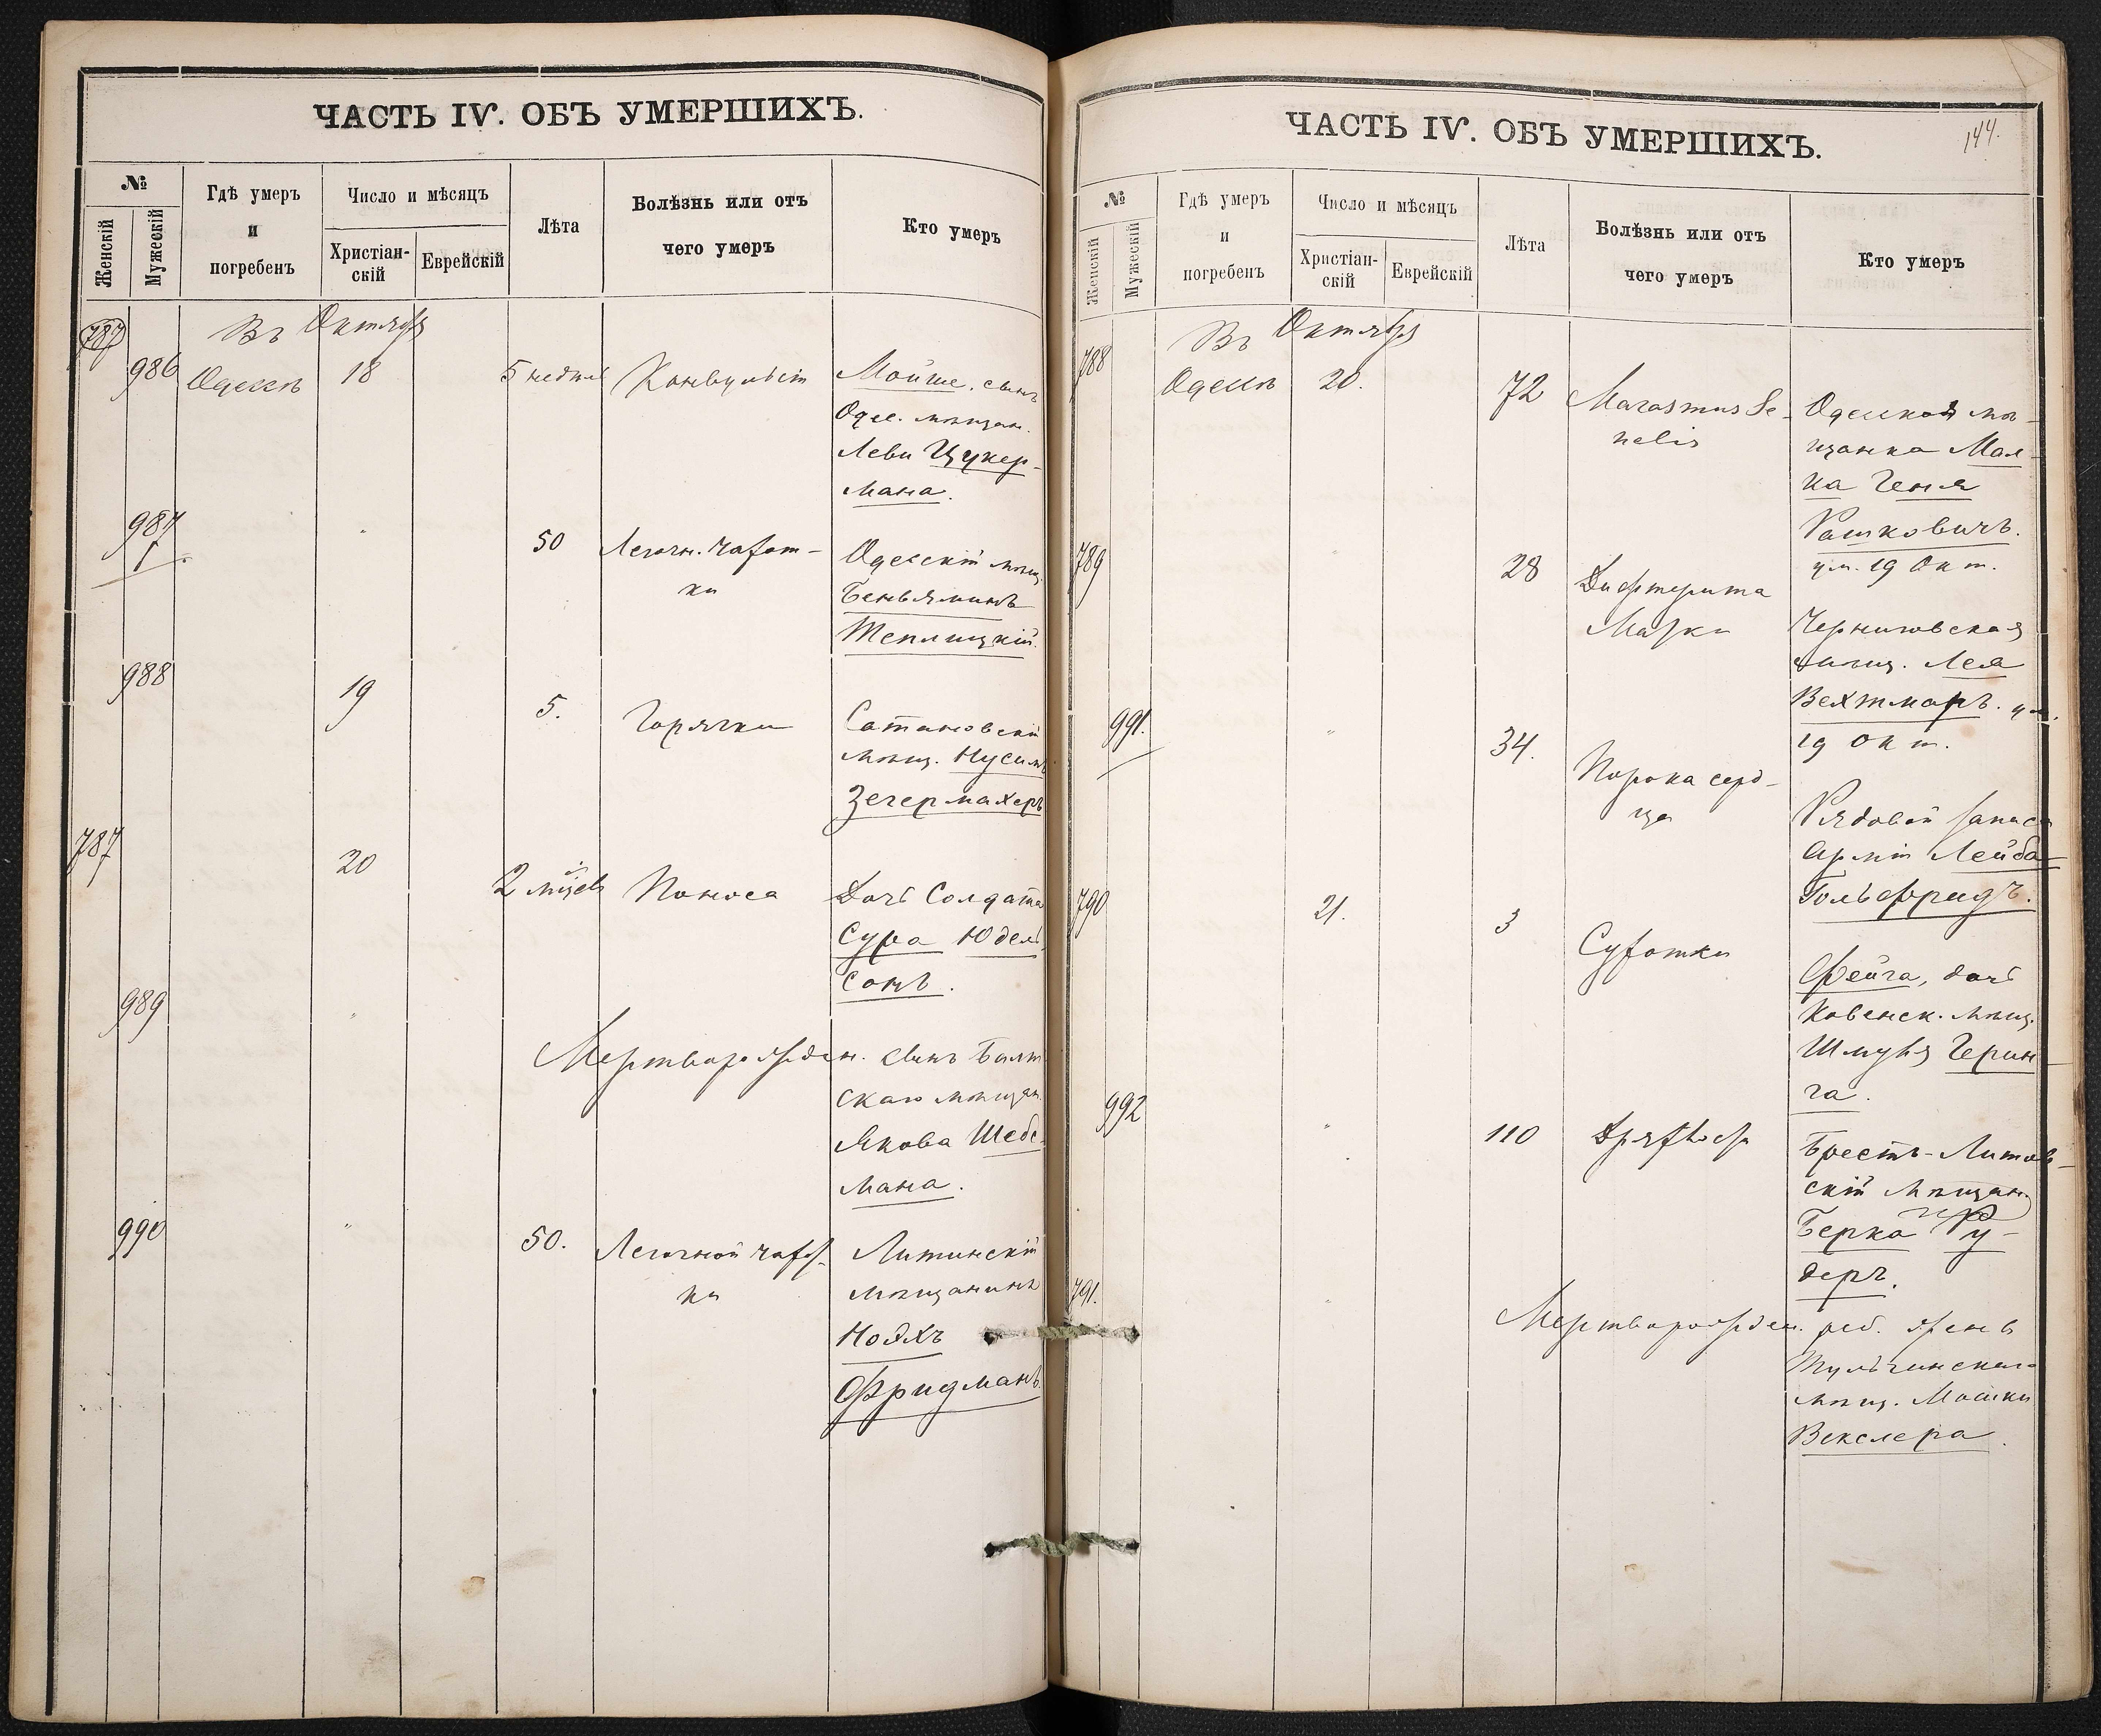 ЧАСТЬ IV. ОБЪ УМЕРШИХЪ.
№
Женскій
Мужескій
Гдѣ умеръ
и
погребенъ
Число и мѣсяцъ
Христіан-
скій
Еврейскій
Лѣта
Болѣзнь или отъ
чего умеръ
Кто умеръ
787
Въ Октябрѣ
986 Одессѣ 18 5 недѣль Конвульсіи Мойше, сынъ
Одес. мѣщан.
Леви Цукер-
мана.
987 " 50 Легочн. чахот-
ки
Одесскій мѣщ.
Беньяминъ
Теплицкій.
988 19 5. Горячки Сатановскій
мѣщ. Нусимъ
Зегермахеръ
787 20 2 мѣсц. Поноса Дочь Солдата
Сура Юдель-
сонъ.
989 " Мертворожден. сынъ Балт
скаго мѣщан.
Якова Шебс-
мана.
990 " 50. Легочной чахот-
ки
Литинскій
мѣщанинъ
Нояхъ
Фридманъ.
ЧАСТЬ IV. ОБЪ УМЕРШИХЪ.
144.
№
Женскій
Мужескій
Гдѣ умеръ
и
погребенъ
Число и мѣсяцъ
Христіан-
скій
Еврейскій
Лѣта
Болѣзнь или отъ
чего умеръ
Кто умеръ
Въ Октябрѣ
788 Одессѣ 20. 72 Marasmus Se-
nelis
Одесская мѣ-
щанка Мал-
ка Геня
Рашковичъ.
ум. 19 Окт.
789 " 28 Дифтерита
Матки
Черниговская
мѣщ. Лея
Вехтмаръ. ум.
19 Окт.
991. " 34. Порока серд-
ца
Рядовой запаса
Арміи Лейба
Гольдфридъ.
790 21. 3 Сухотки Фейга, дочь
Ковенск. мѣщ.
Шмуля Герин-
га.
992 " 110 Дряхлост Брестъ-Литов-
скій мѣщан.
Берка Ру-
деръ.
791. " Мертворожден. реб. женск
Тульчинскаго
мѣщ. Мошки
Векслера.